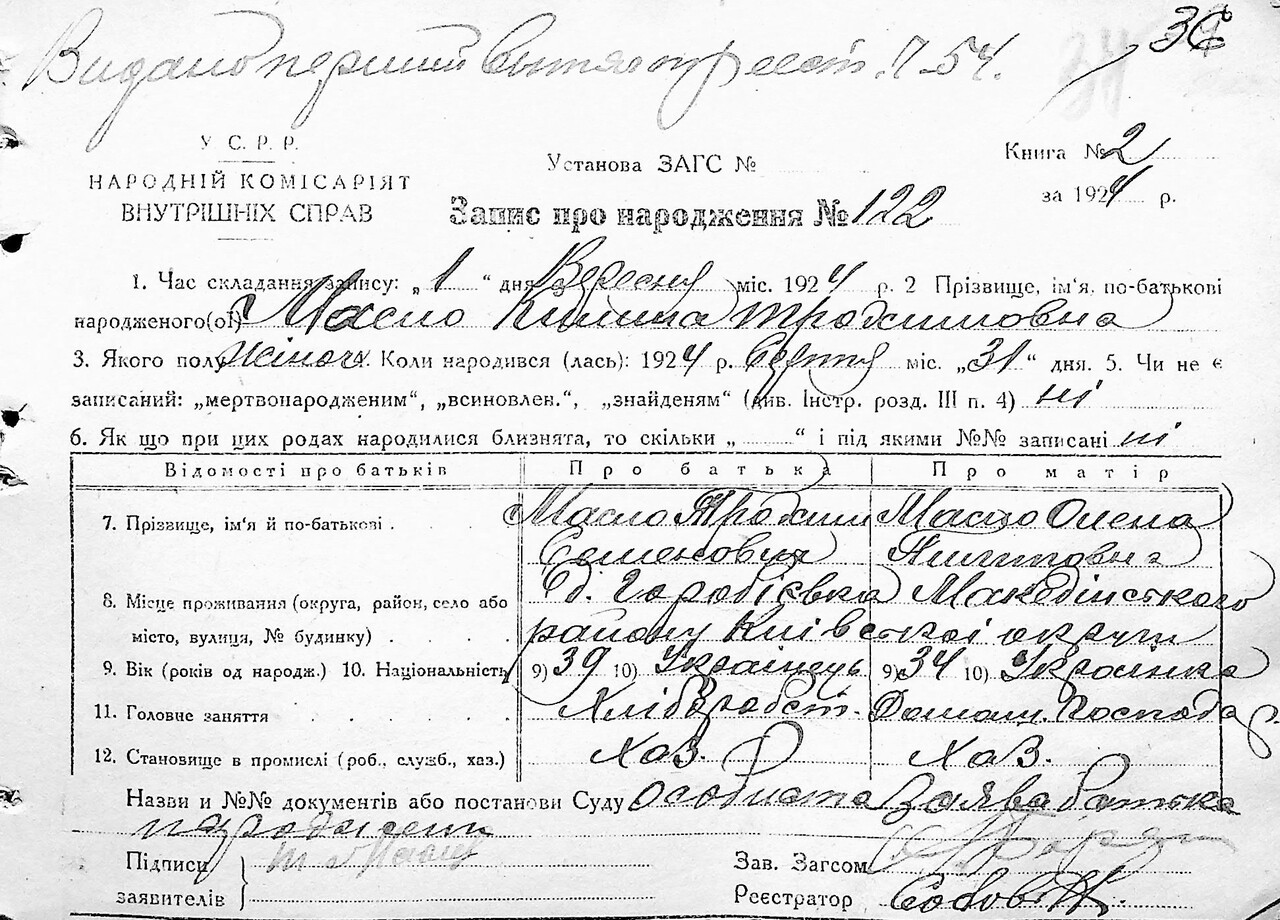 Видано перший витяг 7-54.
36
У С. Р. Р.
НАРОДНІЙ КОМІСАРІЯТ
ВНУТРІШНІХ СПРАВ
Установа ЗАГС №
Книга № 2
за 1924 р.
Запис про народження № 122
1. Час складання запису: „ 1 “ дня Вересня міс. 1924 р. 2 Прізвище, ім'я, по-батькові
народженого(ої) Масло Килина Трохимовна
3. Якого полу жіноч. Коли народився (лась): 1924 р. Серпня міс. „ 31 “ дня. 5. Чи не є
записаний: „мертвонародженим“, „всиновлен.“, „знайденям“ (див. Інстр. розд. III п. 4) ні
6. Як що при цих родах народилися близнята, то скільки „ “ і під якими №№ записані ні
Відомості про батьків Про батька Про матір
7. Прізвище, ім'я й по-батькові . Масло Трохим Масло Олена
Семенович Пилиповна
8. Місце проживання (округа, район, село або д. Городієвка Македінського
місто, вулиця, № будинку) району Київської округи
9. Вік (років од народж.) 10. Національність 9) 39 10) Українець 9) 34 10) Українка
11. Головне заняття Хлібороб Домаш. Господар.
12. Становище в промислі (роб., служб., хаз.) хаз. хаз.
Назви и №№ документів або постанови Суду Особиста заява батька
Підписи т Масло Зав. Загсом
заявителів Реєстратор